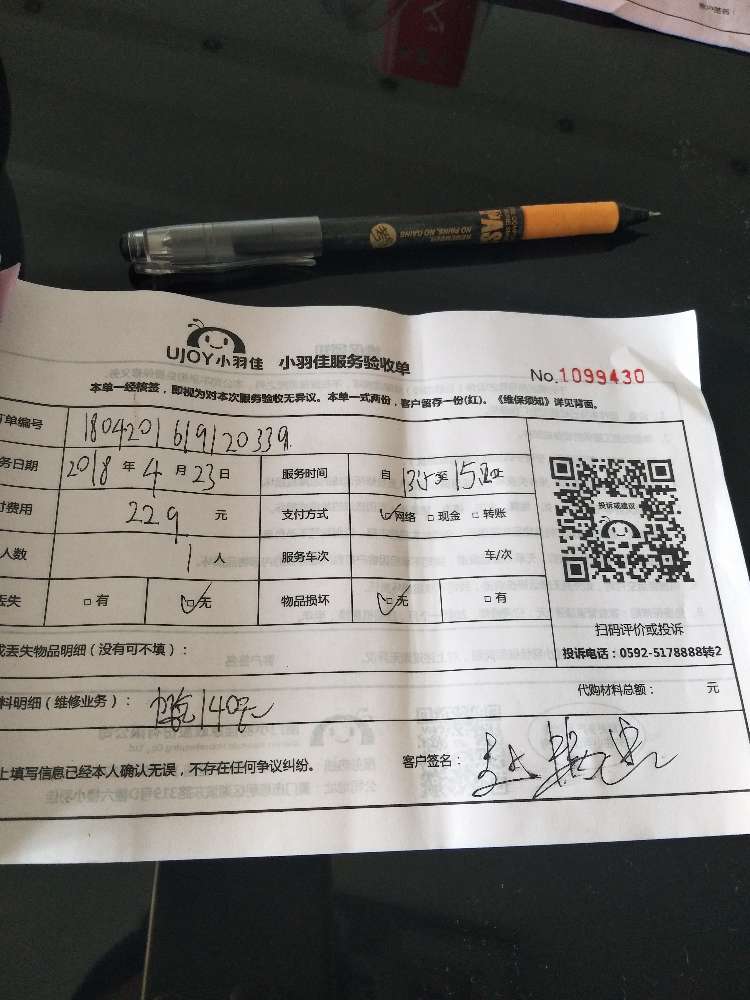 客户签名：
PASS
REMEMBER
NO PAINS, NO GAINS
UJOY小羽佳 小羽佳服务验收单
No.1099430
本单一经核签，即视为对本次服务验收无异议。本单一式两份，客户留存一份(红)。《维保须知》详见背面。
订单编号 1804201619120339
务日期 2018 年 4 月 23 日 服务时间 自 至 止
付费用 229 元 支付方式 网络 现金 转账
投诉或建议
人数 1 人 服务车次 车/次
丢失 有 无 物品损坏 无 有
扫码评价或投诉
或丢失物品明细（没有可不填）：
投诉电话：0592-5178888转2
料明细（维修业务）： 140元
代购材料总额： 元
上填写信息已经本人确认无误，不存在任何争议纠纷。 客户签名：